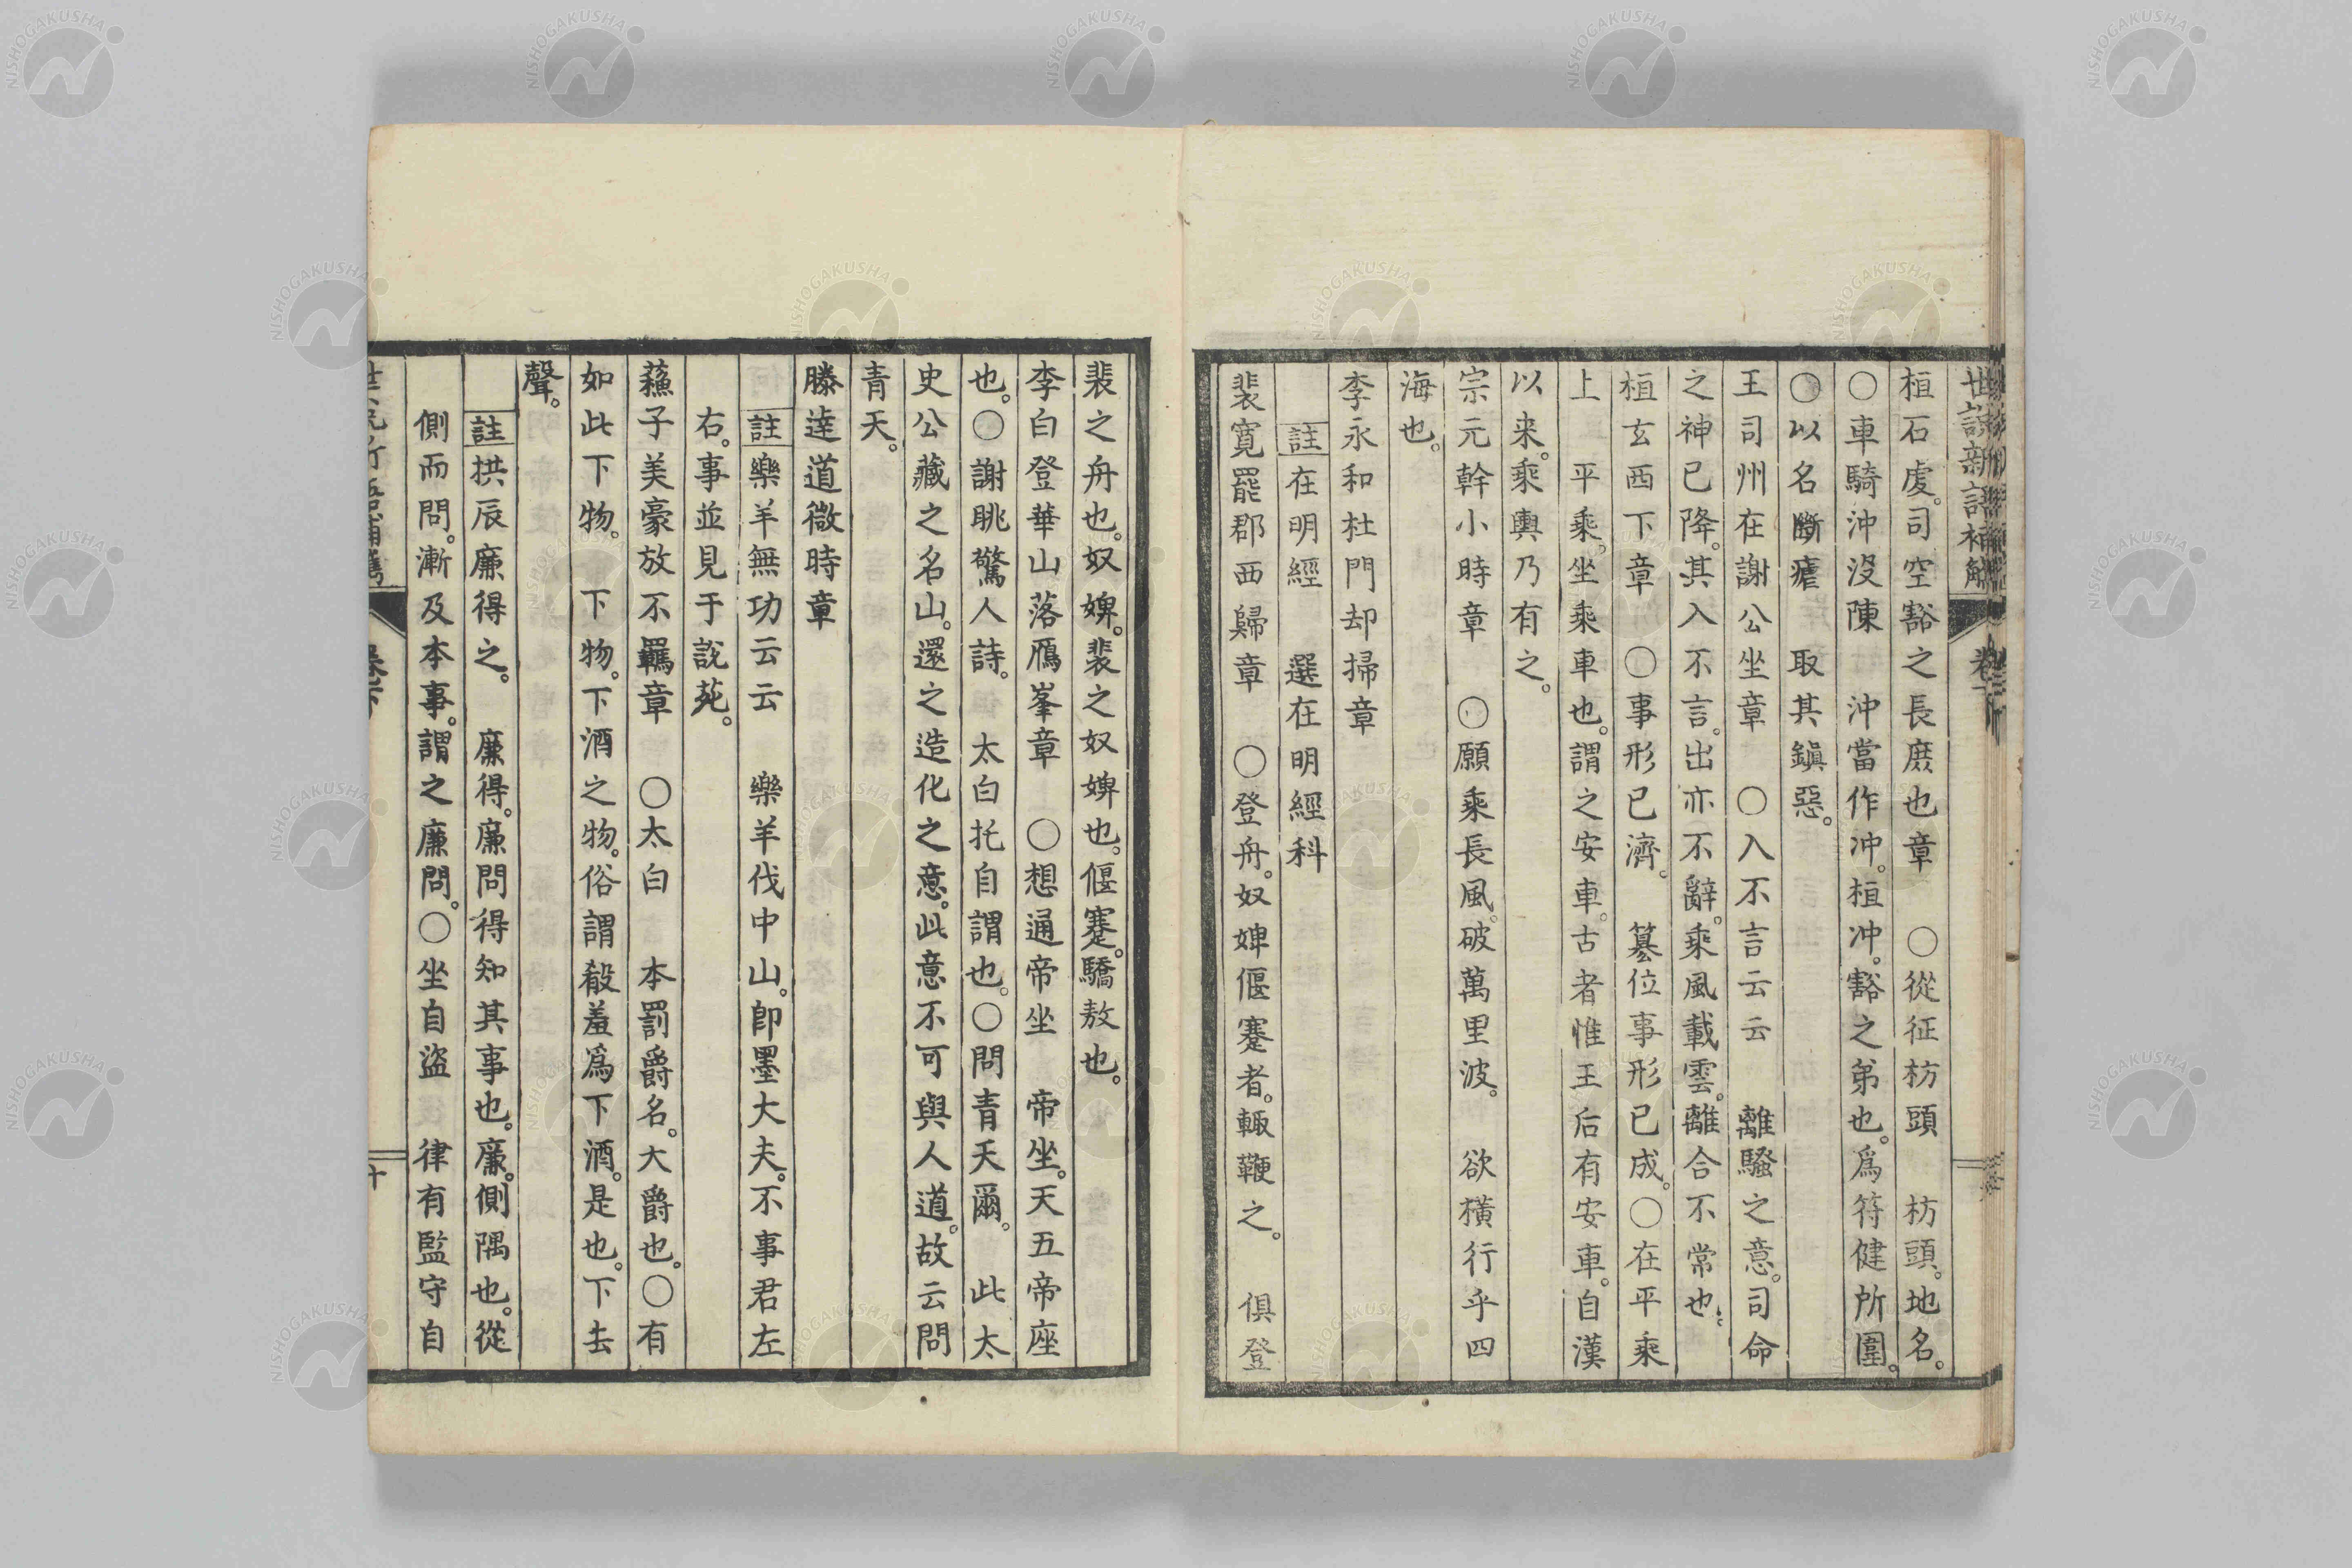 世說新語補觿 卷下
桓石虔。司空豁之長庶也章 ○從征枋頭 枋頭。地名。
○車騎沖沒陳 沖當作冲。桓冲。豁之弟也。爲符健所圍。
○以名斷瘧 取其鎭惡。
王司州在謝公坐章 ○入不言云云 離騷之意。司命
之神已降。其入不言。出亦不辭。乘風載雲。離合不常也。
桓玄西下章 ○事形已濟。 簒位事形已成。○在平乘
上 平乘。坐乘車也。謂之安車。古者惟王后有安車。自漢
以来。乘輿乃有之。
宗元幹小時章 ○願乘長風。破萬里波。 欲橫行乎四
海也。
李永和杜門却掃章
註在明經 選在明經科
裴寬罷郡西歸章 ○登舟。奴婢偃蹇者。輙鞭之。 俱登
裴之舟也。奴婢。裴之奴婢也。偃蹇。驕敖也。
李白登華山落鴈峯章 ○想通帝坐 帝坐。天五帝座
也。○謝眺驚人詩。 太白托自謂也。○問青天爾。 此太
史公藏之名山。還之造化之意。此意不可與人道。故云問
青天。
滕逹道微時章
註樂羊無功云云 樂羊伐中山。卽墨大夫。不事君左
右。事並見于說苑。
蘓子美豪放不羈章 ○太白 本罰爵名。大爵也。○有
如此下物。 下物。下酒之物。俗謂殽羞爲下酒。是也。下去
聲。
註拱辰廉得之。 廉得。廉問得知其事也。廉。側隅也。從
側而問。漸及本事。謂之廉問。○坐自盜 律有監守自